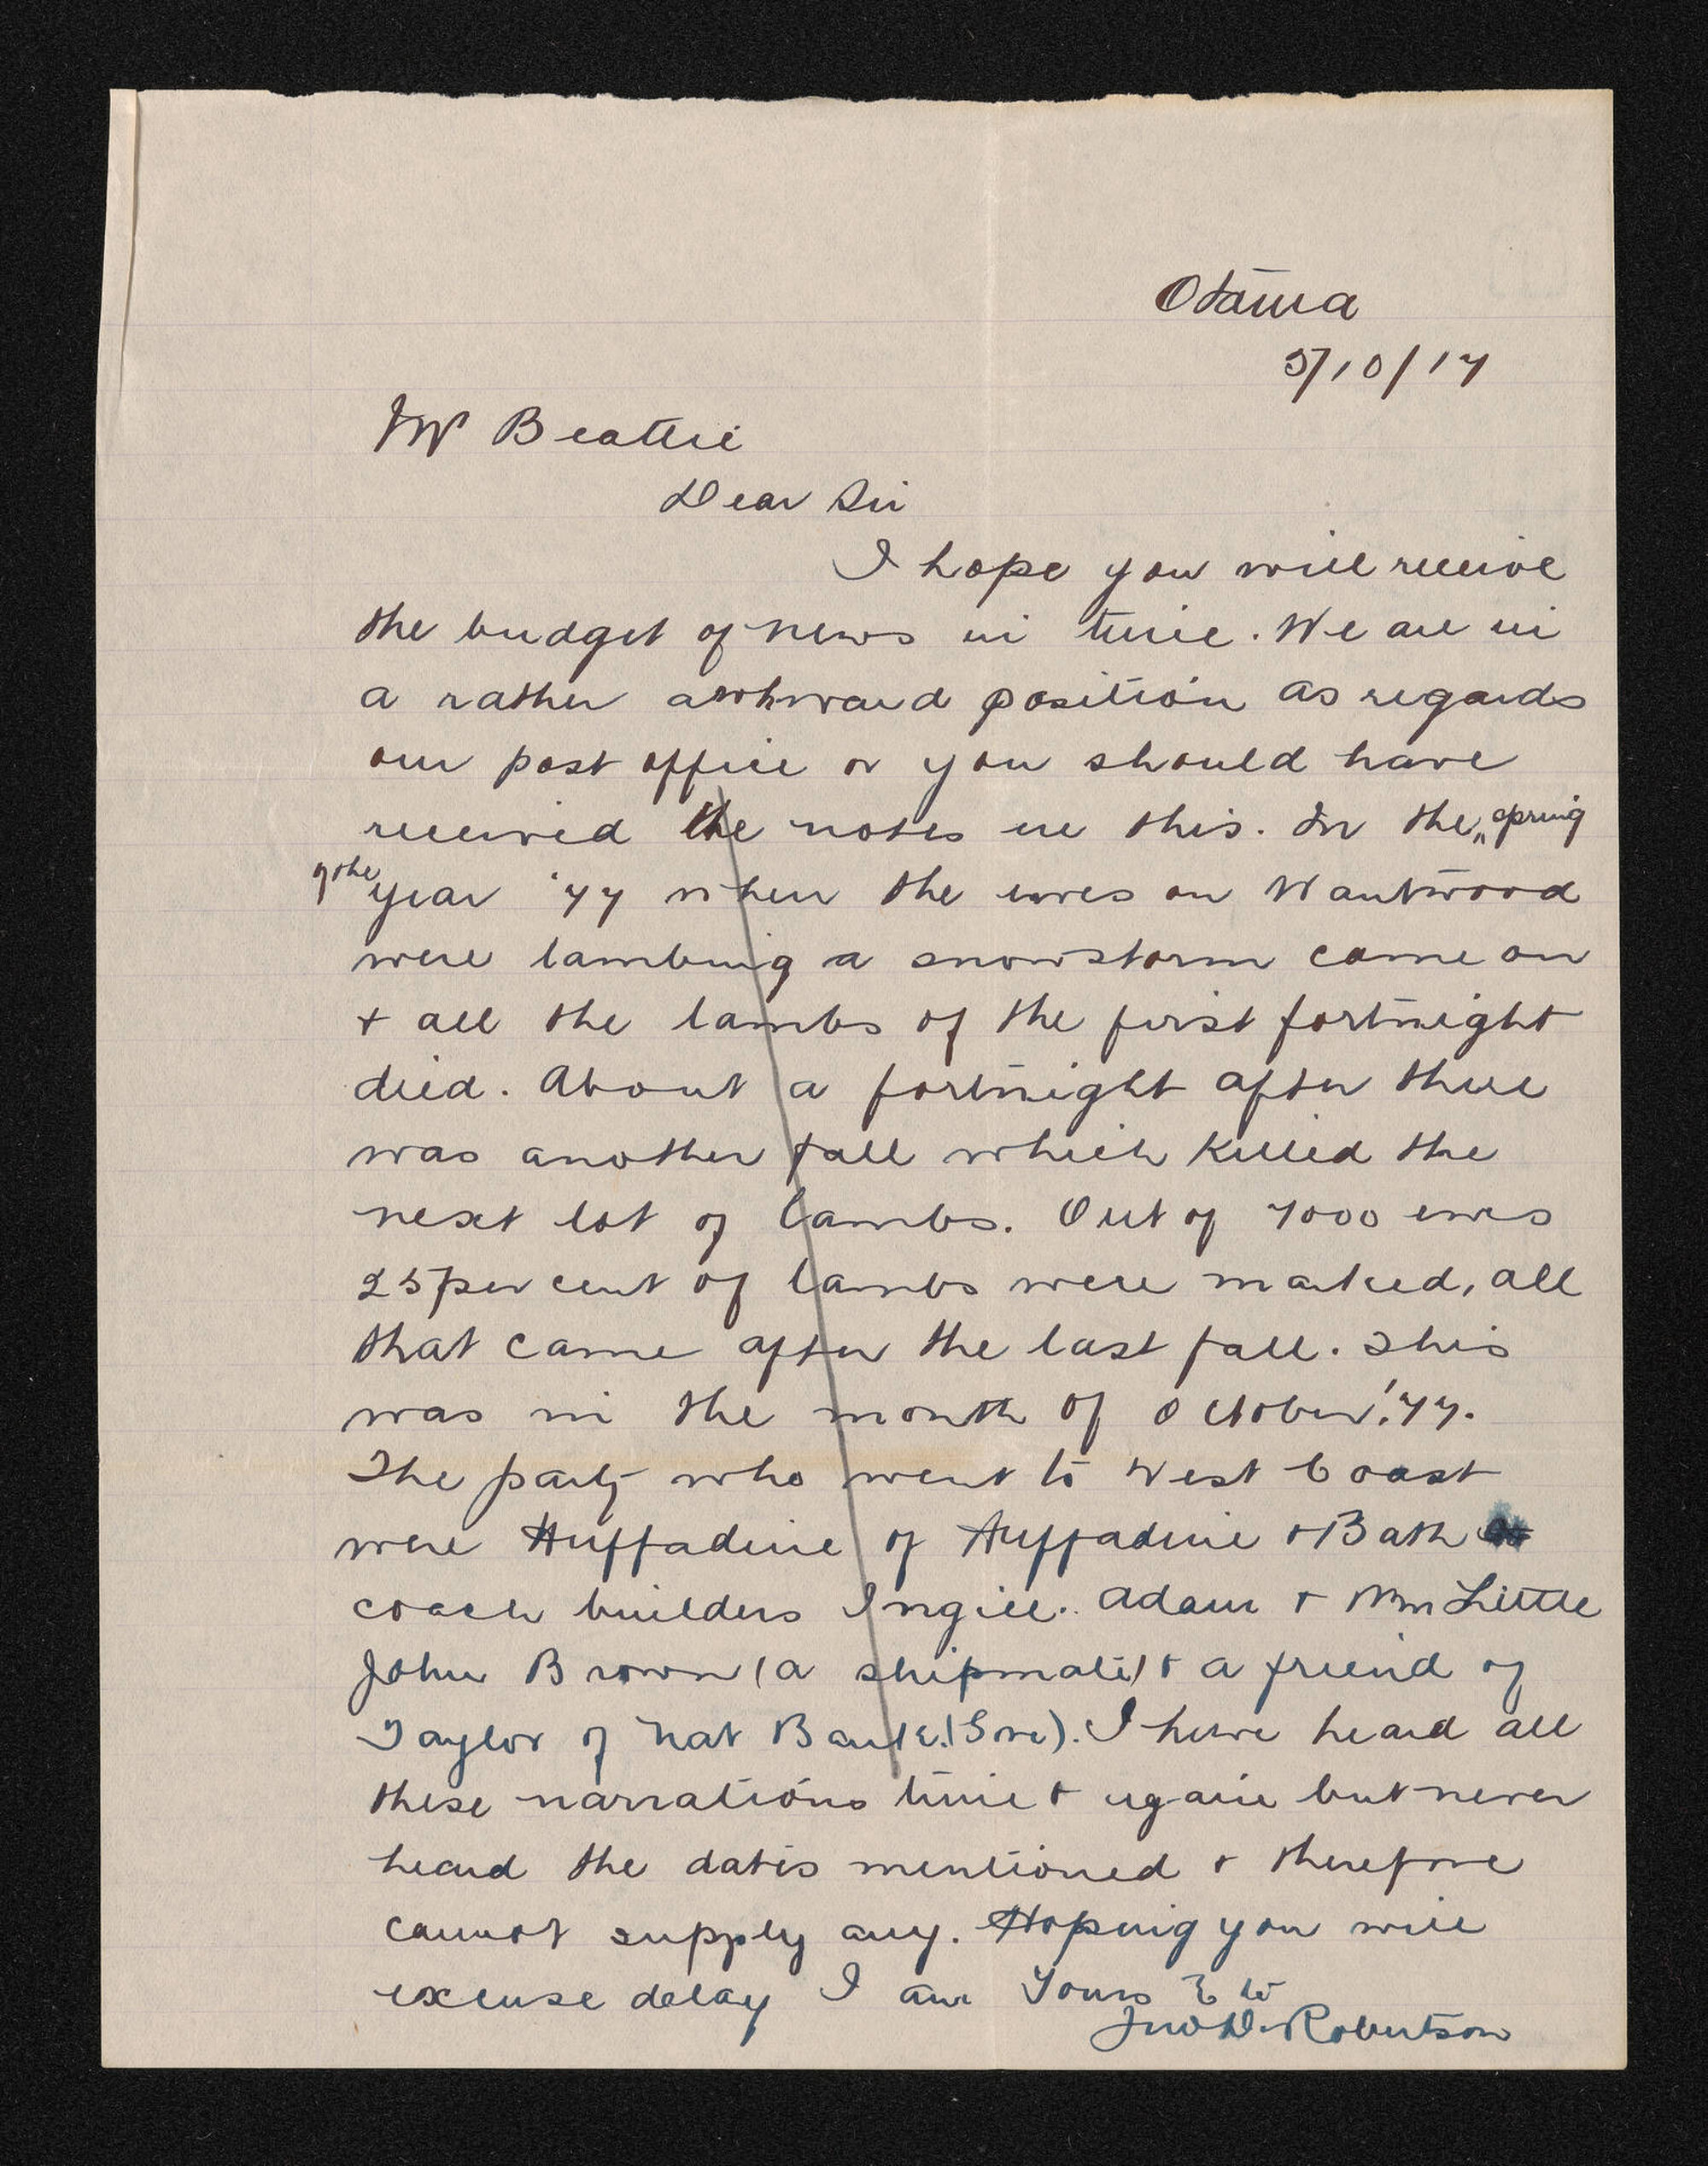 Otama
5/10/17
Mr Beattie
Dear Sir
I hope you will receive
the budget of news in time. We are in
a rather awkward position as regards
our post office or you should have
received the notes ere this. In the spring
of the year '77 when the ewes on Wantwood
were lambing a snowstorm came on
+ all the lambs of the first fortnight
died. About a fortnight after there
was another fall which killed the
next lot of lambs. Out of 7000 ewes
25 per cent of lambs were marked, all
that came after the last fall. This
was in the month of October '77.
The party who went to West Coast
were Huffadine of Huffadine + Bath
coach builders Ingill. Adam + Wm Little
John Brown (a shipmate) + a friend of
Taylor of Nat Bank (Gore). I have heard all
these narrations time + again but never
heard the dates mentioned + therefore
cannot supply any. Hoping you will
excuse delay I am Yours
Jno D. Robertson